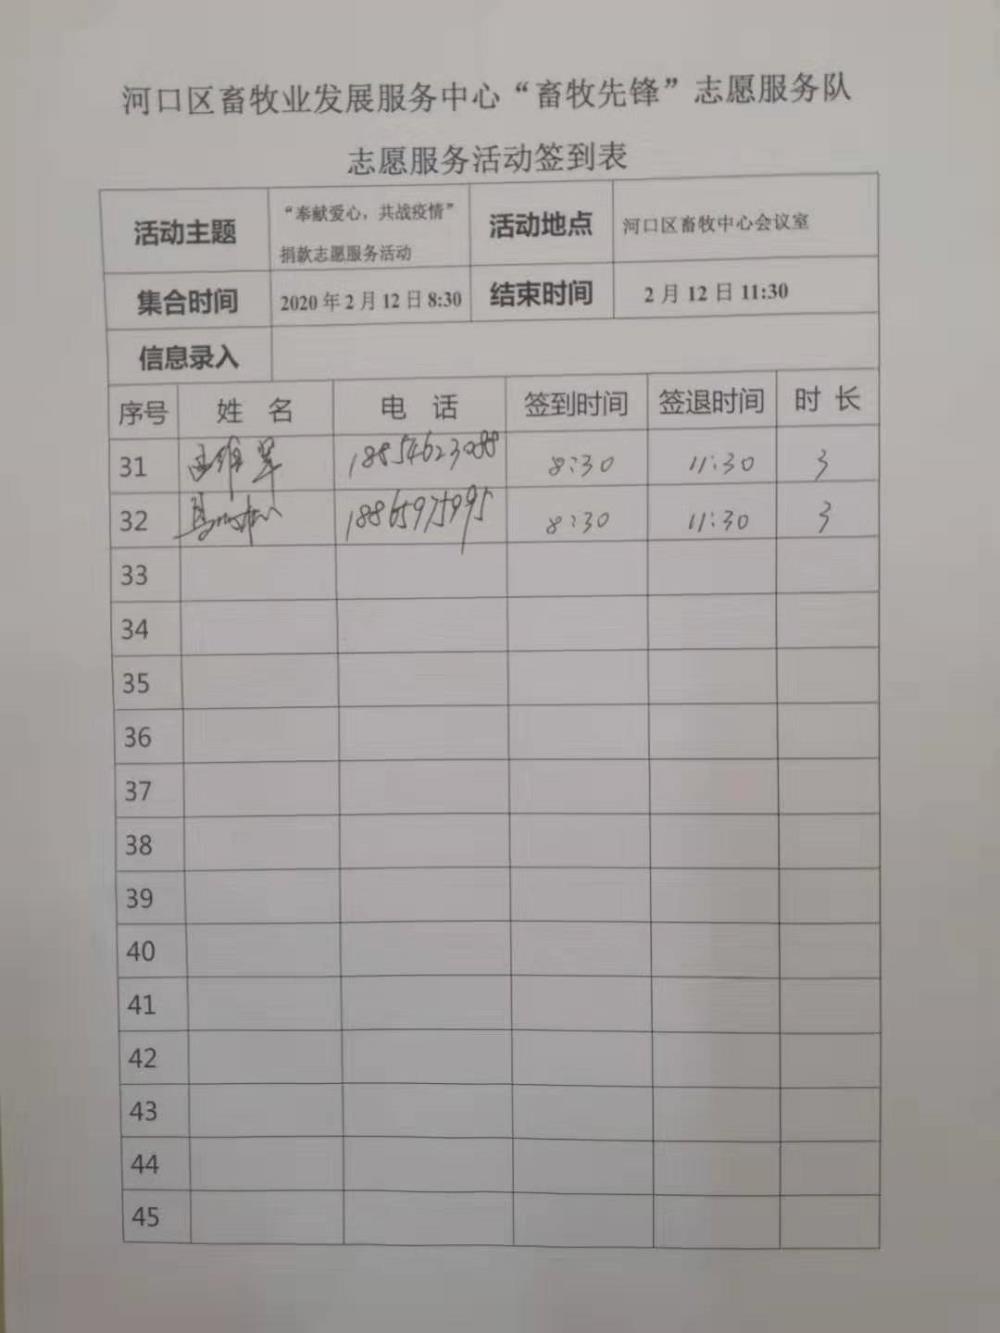 河口区畜牧业发展服务中心“畜牧先锋”志愿服务队
志愿服务活动签到表
活动主题 “奉献爱心，共战疫情” 捐款志愿服务活动 活动地点 河口区畜牧中心会议室
集合时间 2020年2月12日8:30 结束时间 2月12日11:30
信息录入
序号 姓 名 电 话 签到时间 签退时间 时 长
31 18854623088 8:30 11:30 3
32 18865975995 8:30 11:30 3
33
34
35
36
37
38
39
40
41
42
43
44
45